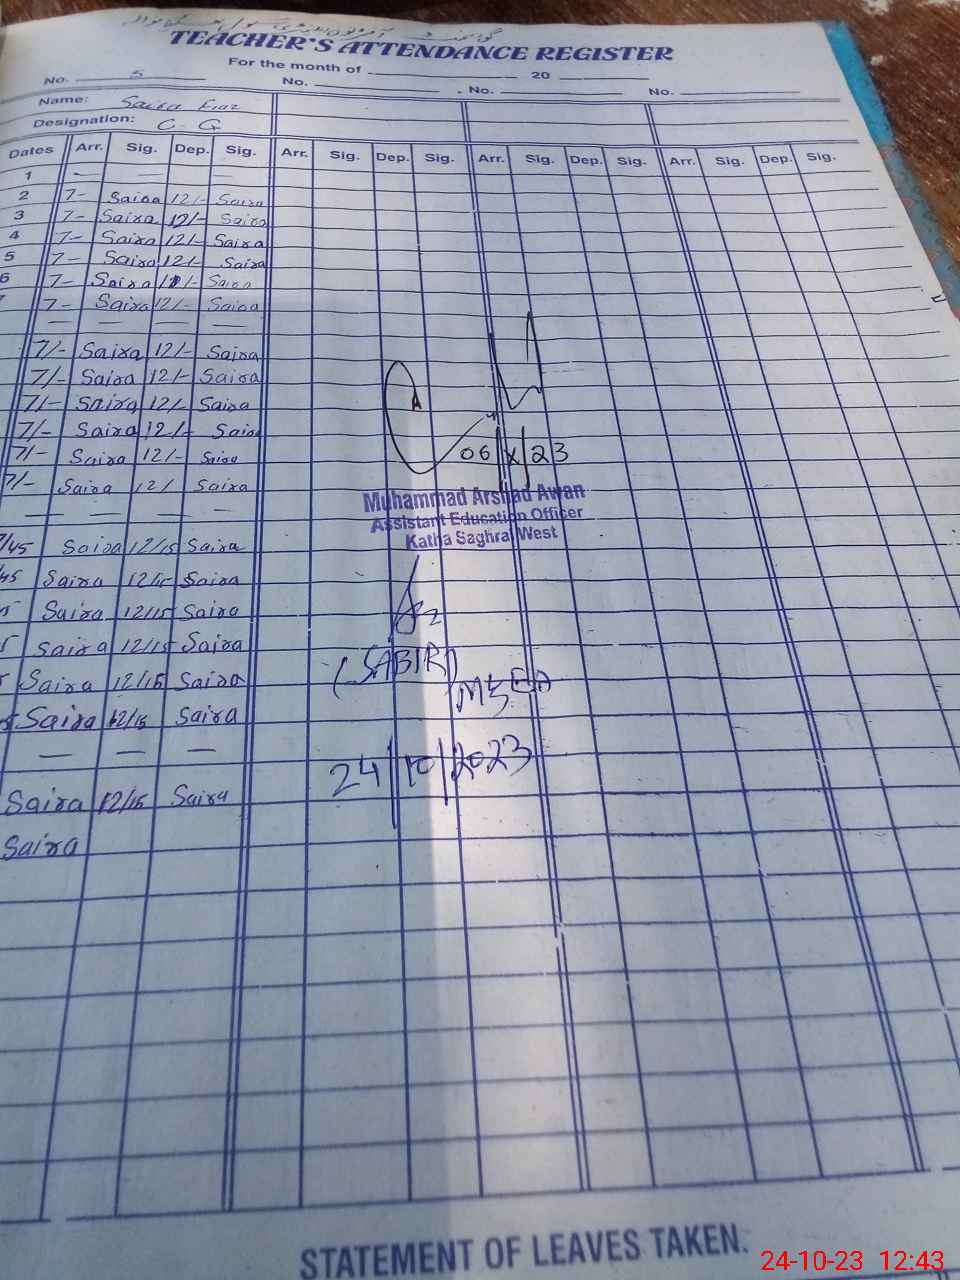 TEACHER'S ATTENDANCE REGISTER
For the month of 20
No. 5 No. No. No.
Name: Saira
Designation: C - G
Dates Arr. Sig. Dep. Sig. Arr. Sig. Dep. Sig. Arr. Sig. Dep. Sig. Arr. Sig. Dep. Sig.
1 — — —
2 7- Saira 12/- Saira
3 7- Saira 12/- Saira
4 7- Saira 12/- Saira
5 7- Saira 12/- Saira
6 7- Saira 12/- Saira
7- Saira 12/- Saira
— — — —
7/- Saira 12/- Saira
7/- Saira 12/- Saira
7/- Saira 12/- Saira
7/- Saira 12/- Saira
7/- Saira 12/- Saira
06/X/23
7/- Saira 12/ Saira
— — — —
Muhammad Arshad Awan
Assistant Education Officer
Katha Saghral West
7/45 Saira 12/15 Saira
45 Saira 12/15 Saira
Saira 12/15 Saira
5 Saira 12/15 Saira
(SABIR)
Saira 12/15 Saira
MEA
Saira 12/15 Saira
— — —
24/10/2023
Saira 12/15 Saira
Saira
STATEMENT OF LEAVES TAKEN.
24-10-23 12:43